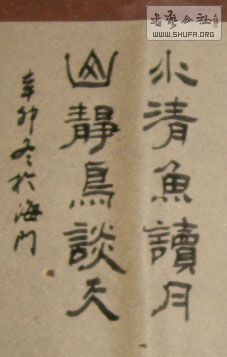 水清魚讀月
山靜鳥談天
辛卯冬於海門
書藝公社
WWW.SHUFA.ORG